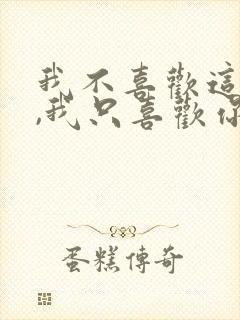 我不喜歡這
,我只喜歡你
蛋糕傳奇